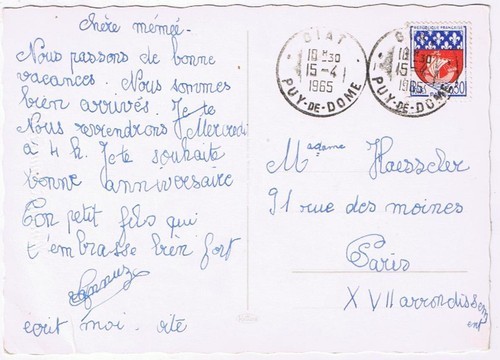 chère mémée.
Nous passons de bonne
vacances. Nous sommes
bien arrivés. Je te
Nous reviendrons Mercredi
à 4 h. Je te souhaite
bonne anniversaire
Ton petit fils qui
t'embrasse bien fort
ecrit moi. vite
GIAT
18 H30
15-4
1965
PUY-DE-DOME
GIAT
18 H30
15-4
1965
PUY-DE-DOME
0,30
Madame Haesscler
91 rue des moines
Paris
XVII arrondissem
ent